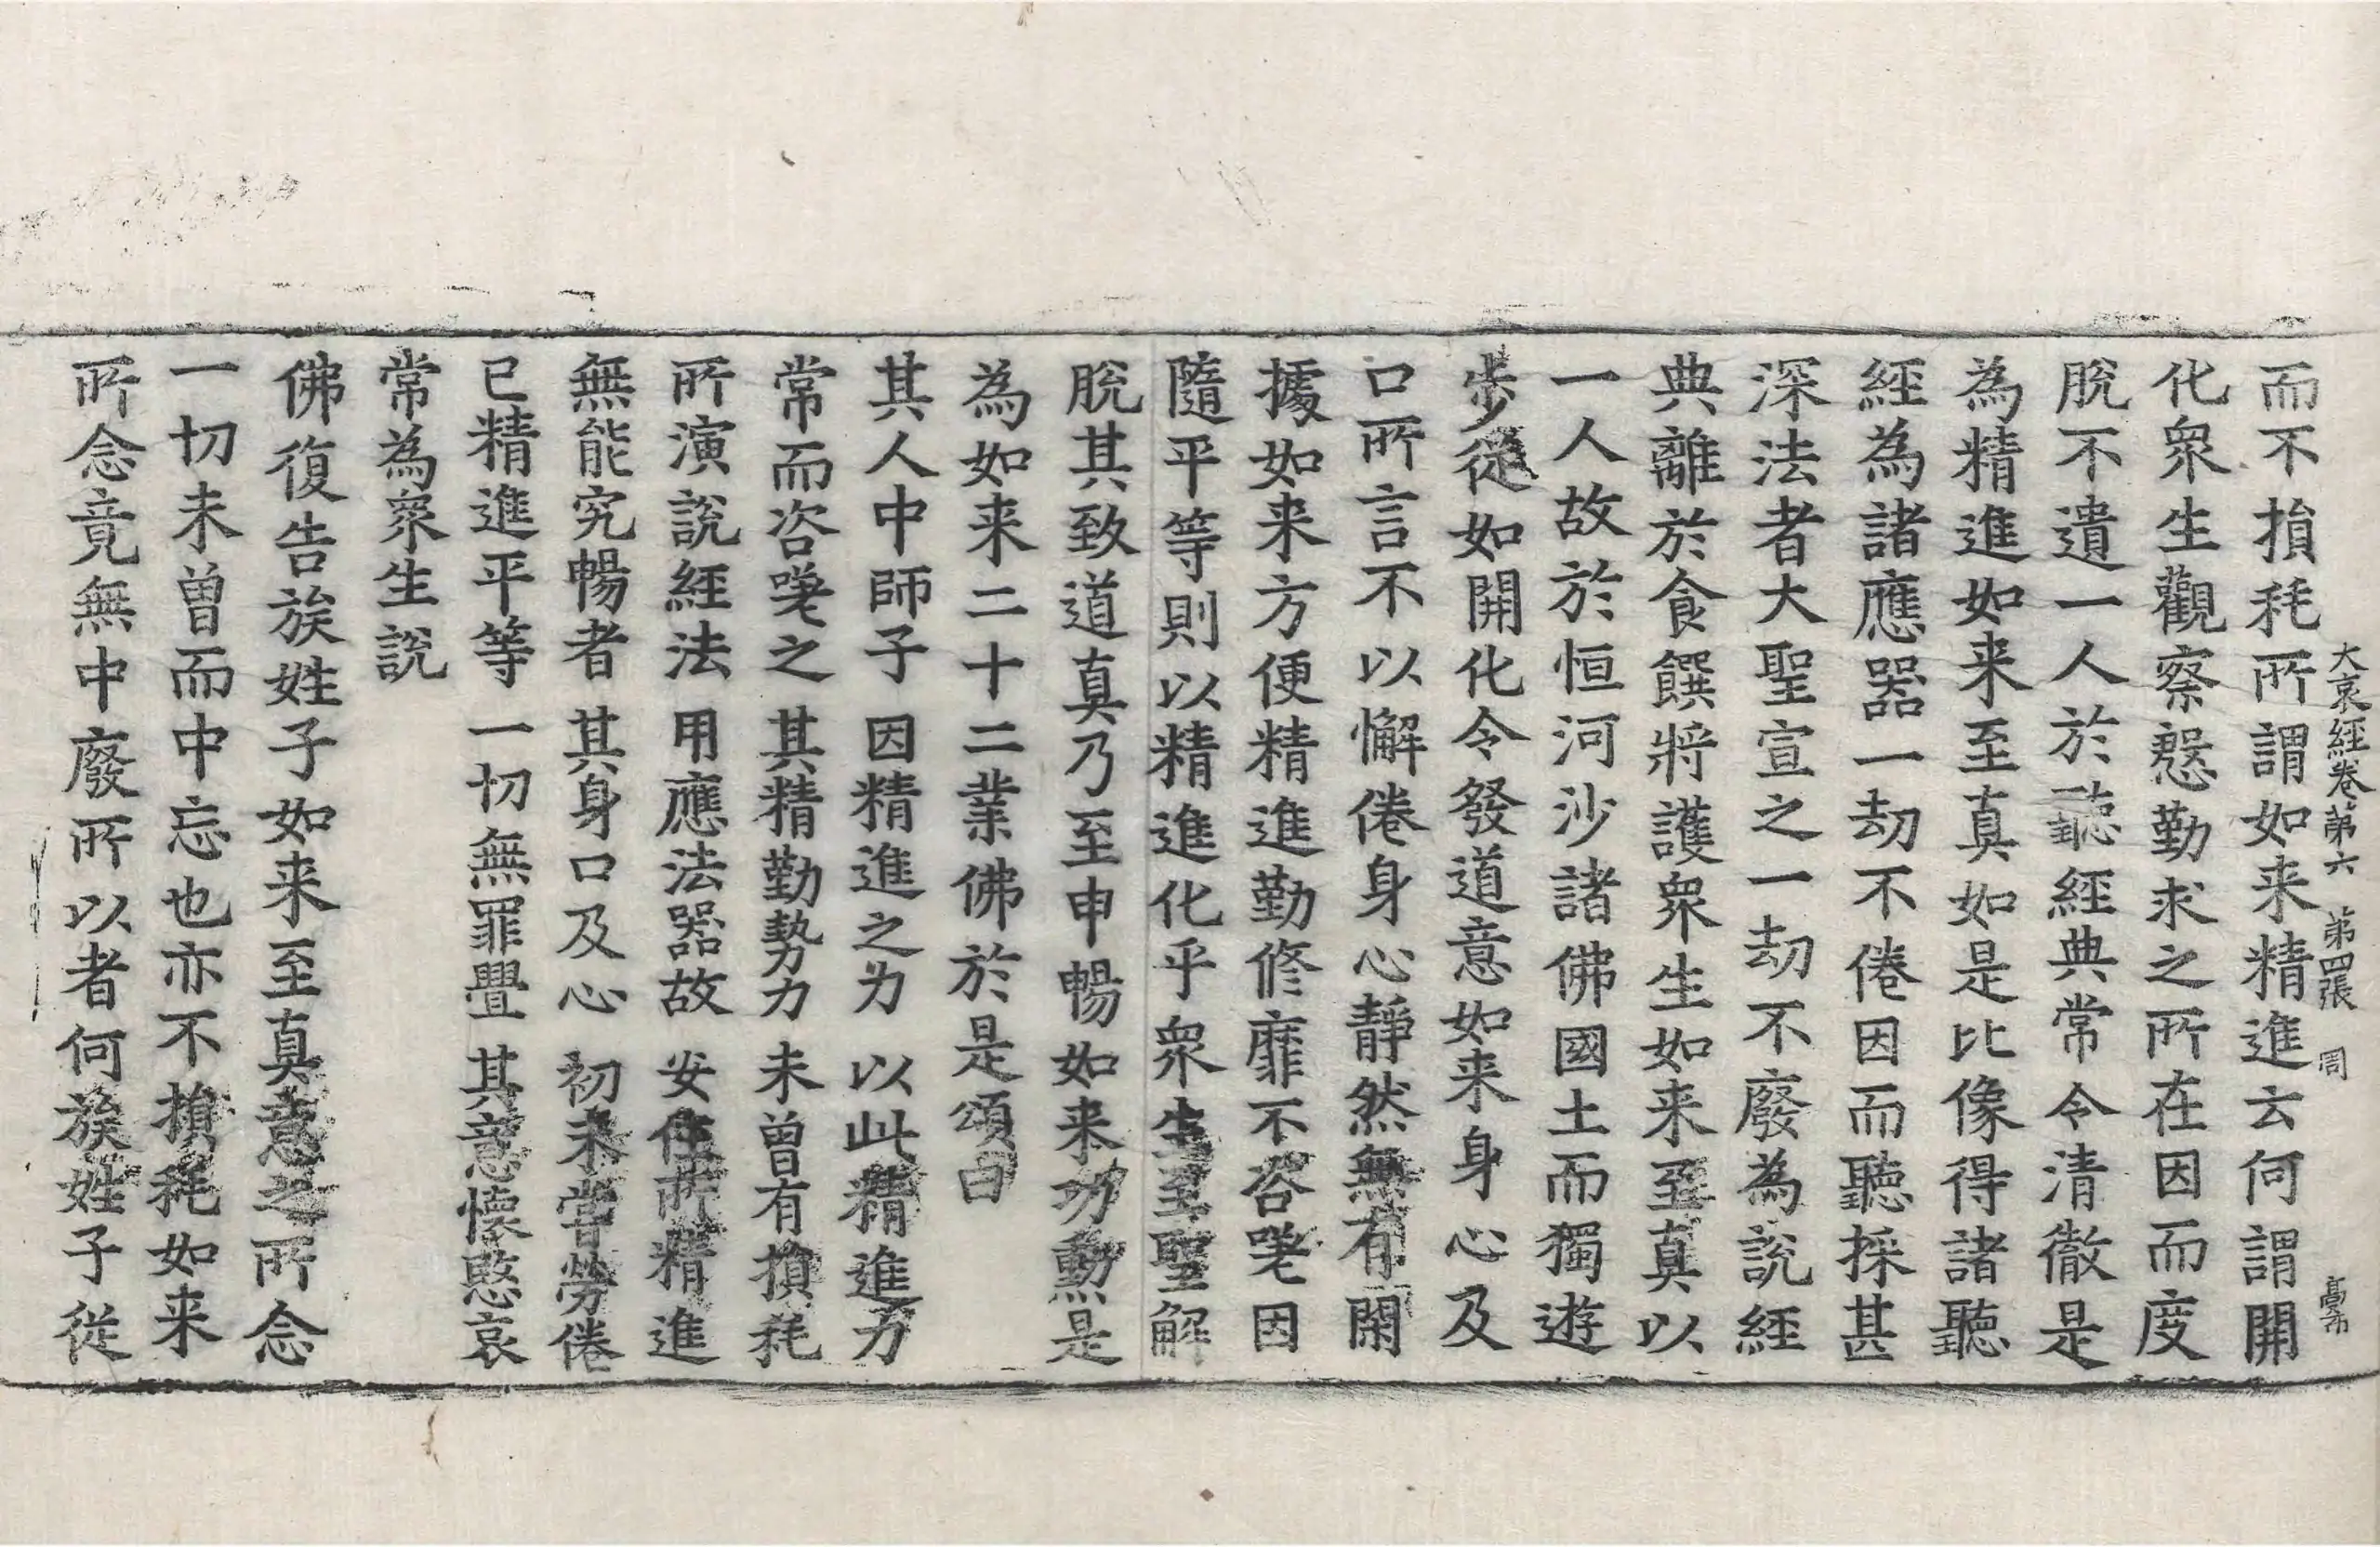 大哀經卷第六 第四張 周
而不損耗所謂如来精進云何謂開
化衆生觀察慇勤求之所在因而度
脫不遺一人於聽經典常令清徹是
為精進如来至真如是比像得諸聽
經為諸應器一劫不倦因而聽採甚
深法者大聖宣之一劫不廢為說經
典離於食饌將護衆生如来至真以
一人故於恒河沙諸佛國土而獨遊
步從如開化令發道意如来身心及
口所言不以懈倦身心靜然無有閑
據如来方便精進勤修靡不咨嗟因
隨平等則以精進化乎衆生至聖解
脫其致道真乃至申暢如来功勳是
為如来二十二業佛於是頌曰
其人中師子 因精進之力 以此精進力
常而咨嗟之 其精勤勢力 未曾有損耗
所演說經法 用應法器故 安住所精進
無能究暢者 其身口及心 初未嘗勞倦
已精進平等 一切無罪舋 其意懷愍哀
常為衆生說
佛復告族姓子如来至真意之所念
一切未曾而中忘也亦不損耗如来
所念竟無中廢所以者何族姓子從